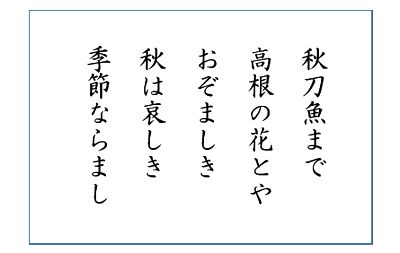 秋刀魚まで
高根の花とや
おぞましき
秋は哀しき
季節ならまし